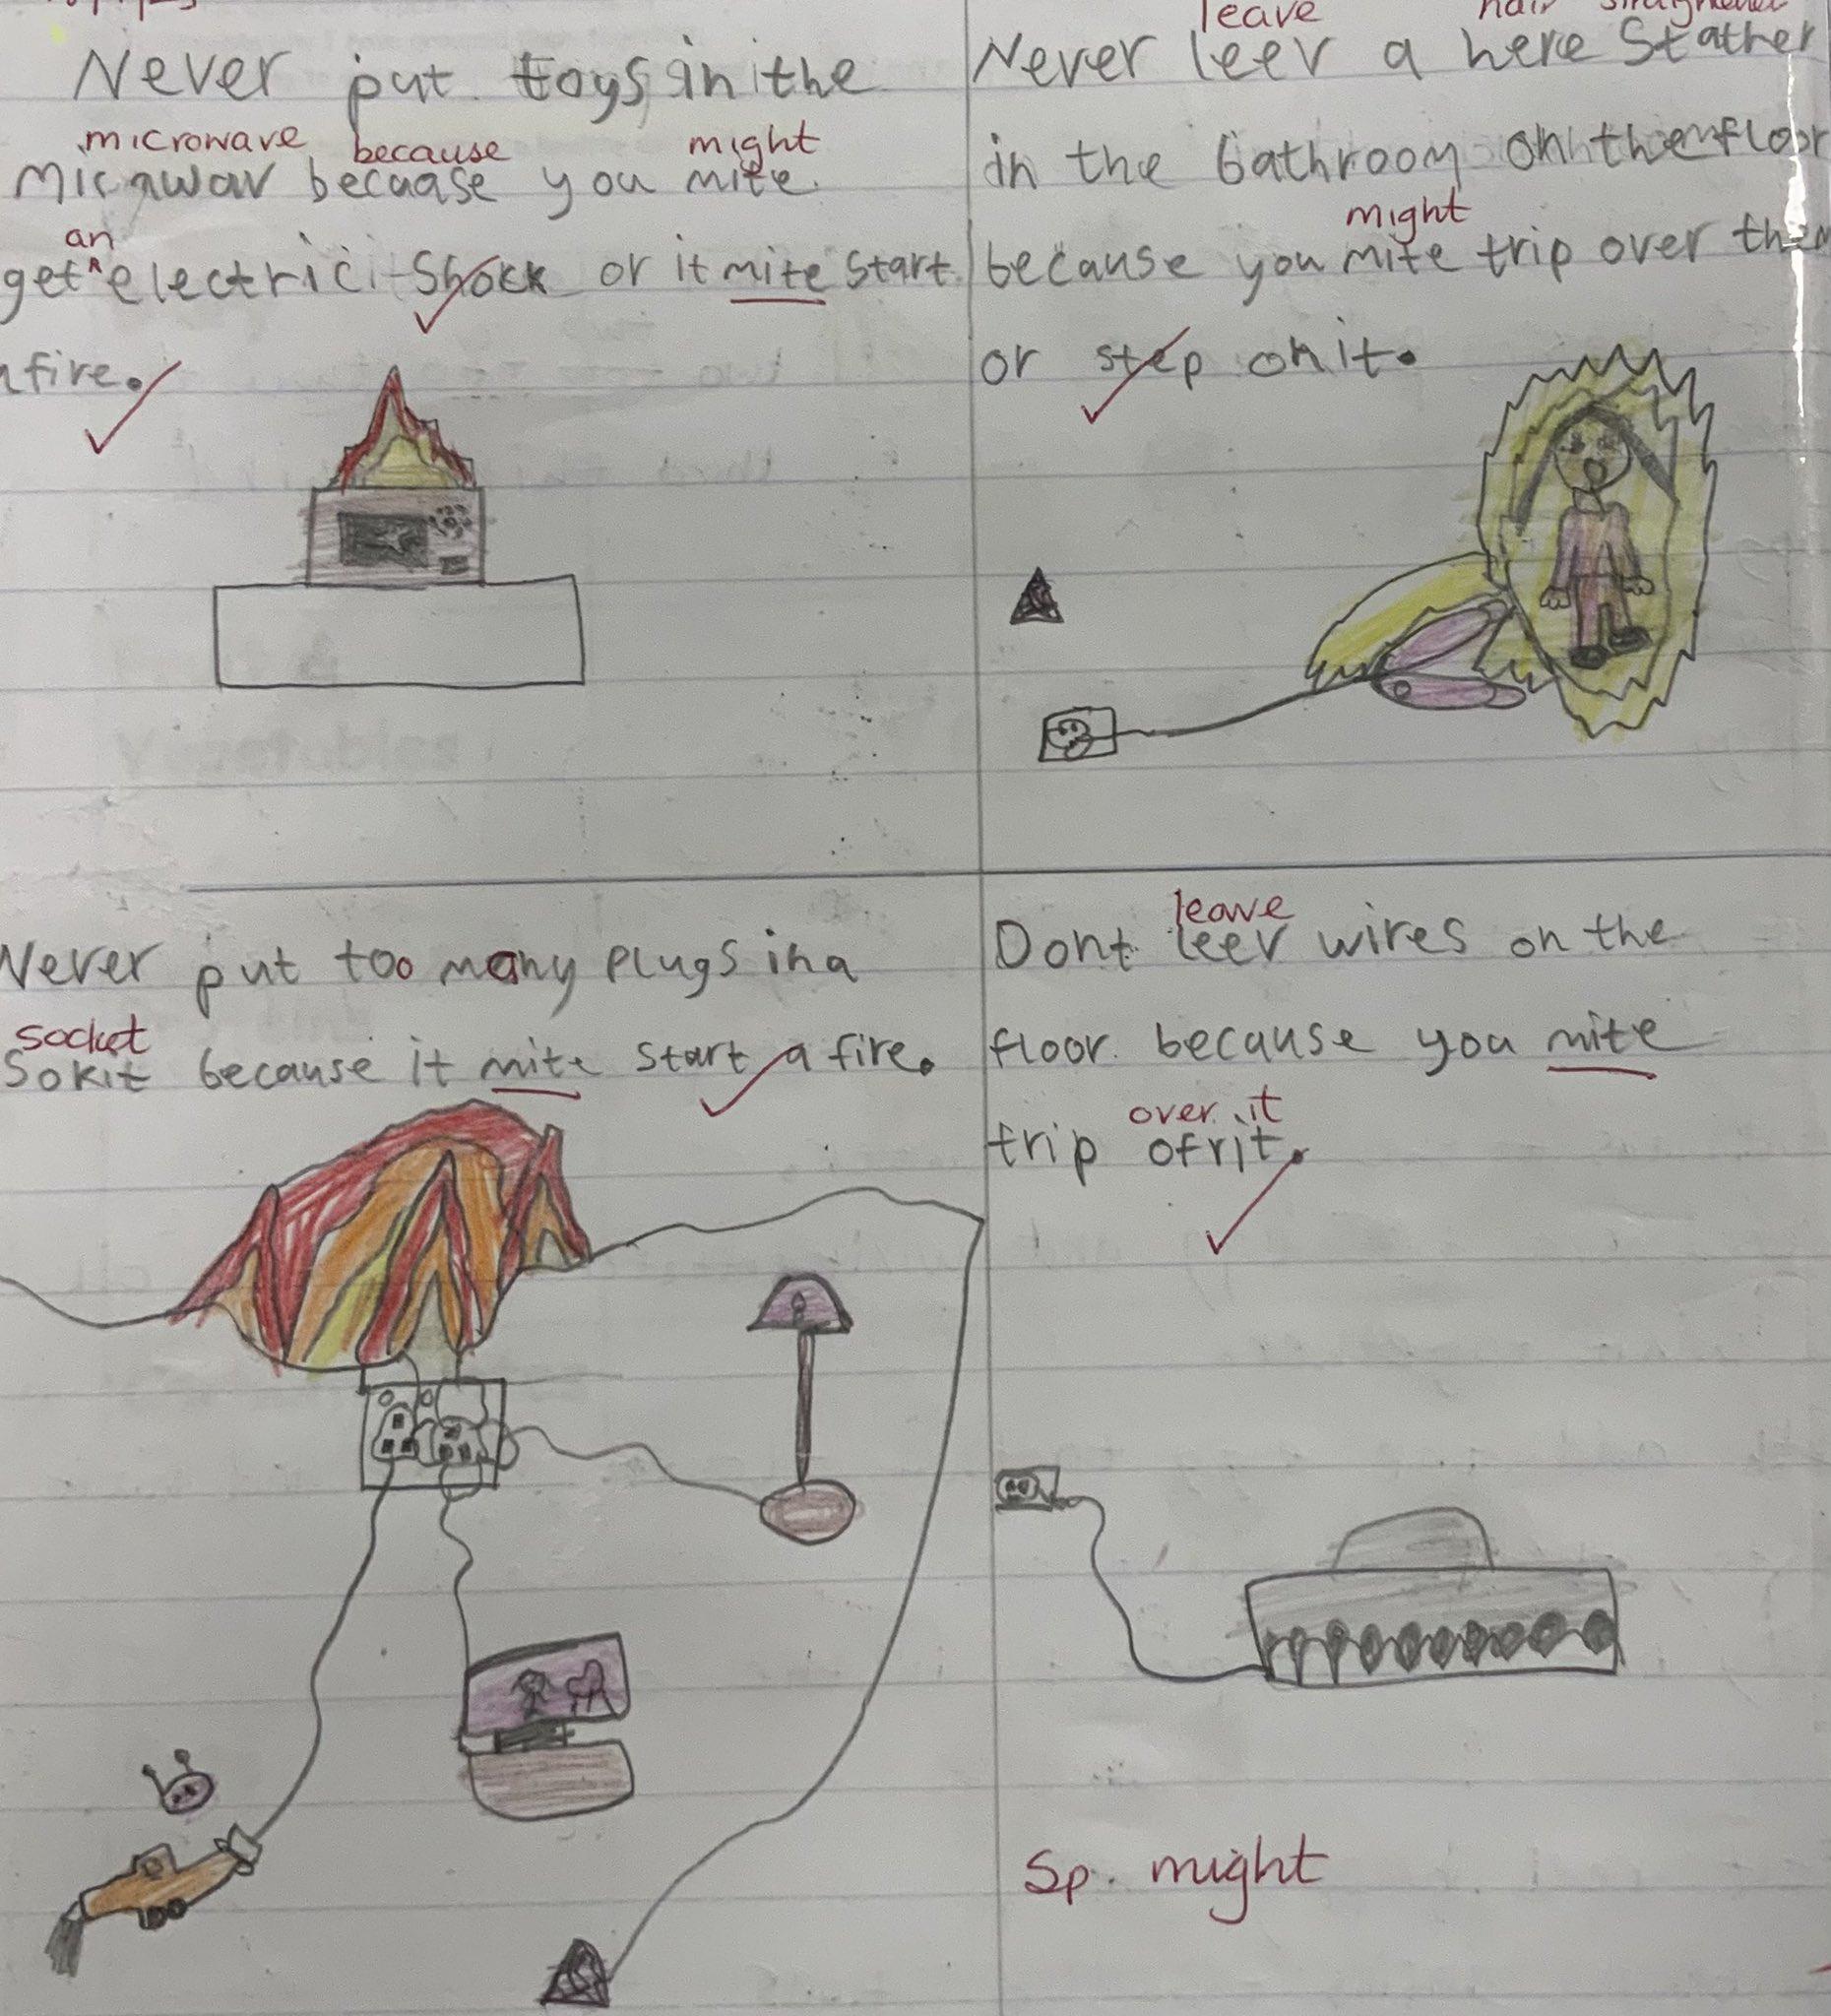 leave hair straightener
Never put toys in the
microwave because might
Micawav becuase you mite
an
get electrici shock or it mite start
fire.
Never leev a here Stather
in the bathroom on the floor
might
because you mite trip over them
or step on it.
Never put too many plugs in a
socket
Sokit because it mite start a fire.
leave
Dont leev wires on the
floor because you mite
over it
trip ofrit.
Sp. might